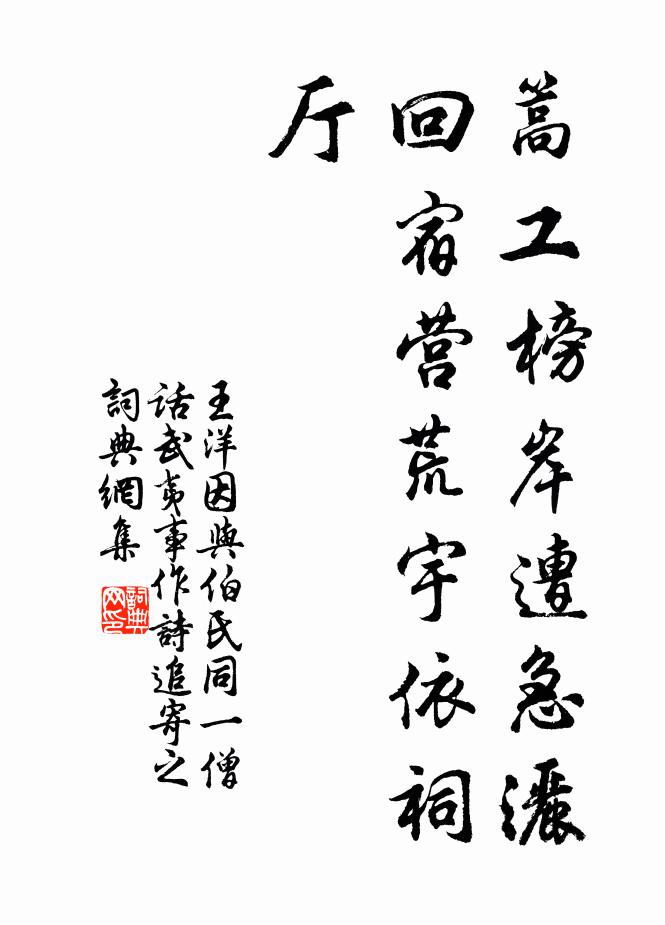 篙工榜岸遭急灑
回宿营荒宇依祠
厅
王洋因與伯氏同一僧
话武夷事作詩追寄之
詞典網集
詞典网印